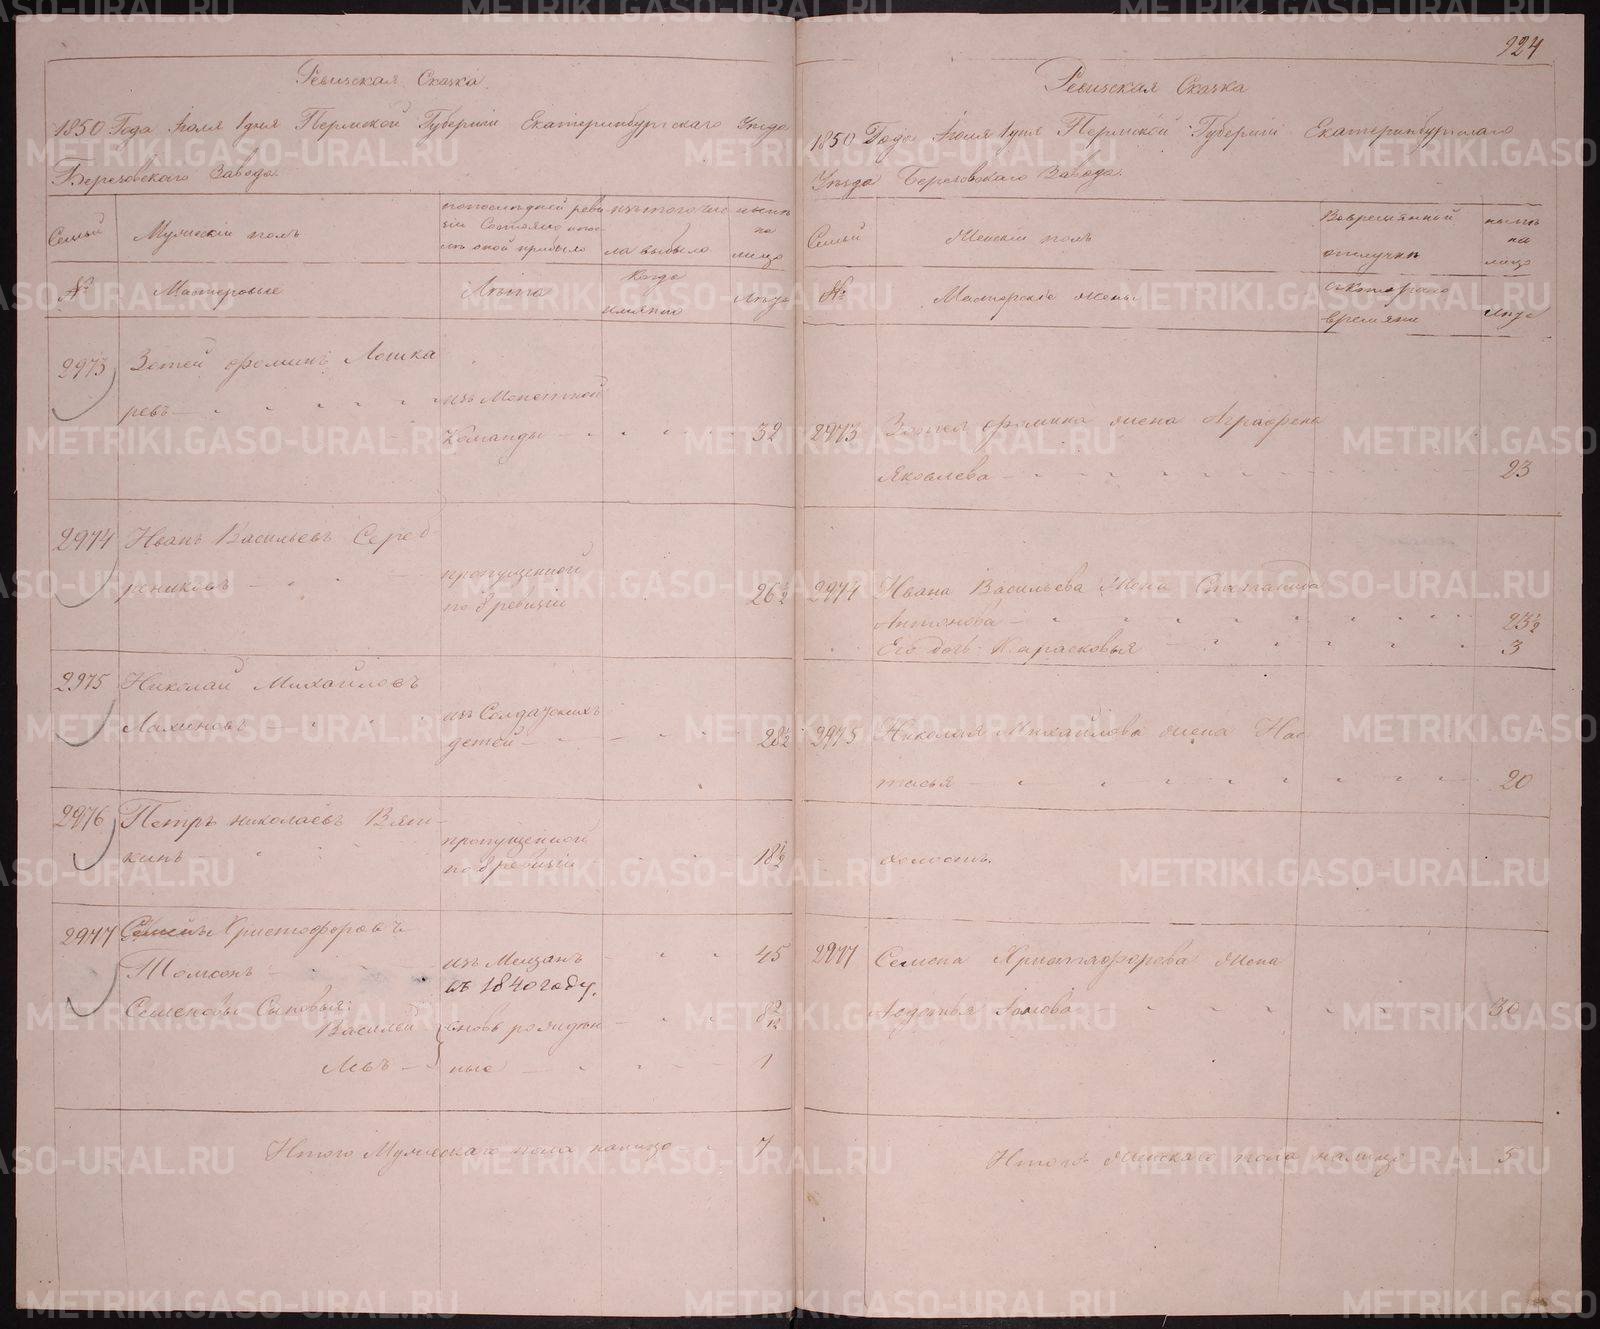 224
Ревизская Сказка
1850 Года Июля 1 дня Пермской Губернии Екатеринбургскаго Уезда
Березовскаго Завода
Семьи
Мужеский полъ
изъ того числа выбыло
ныне на лицо
№
Мастеровые
Лета
Когда имянно
Лета
2973
Зотей Фоминъ Лошка
ревъ
изъ Монетной
Команды
32
2974
Иванъ Васильевъ Сереб
рениковъ
пропущенной
по 8 ревизіи
26½
2975
Николай Михайловъ
изъ Солдатскихъ
детей
28½
2976
Петръ Николаевъ Вят
кинъ
пропущенной
по 8 ревизіи
18½
2977
Христофоровъ
Томсонъ
изъ Мещанъ
въ 1840 году.
45
Семеновы Сыновья:
Василий
вновь рожден
8 9/12
Левъ
ные
1
Итого Мужескаго пола налицо
7
Ревизская Сказка
1850 Года Июля 1 дня Пермской Губернии Екатеринбургскаго
Уезда Березовскаго Завода.
Семьи
Женский полъ
Во временной
отлучке
ныне
на
лицо
№
Мастерские жены
съ котораго
времяни
Лета
2973
Зотея Фомина жена Аграфена
Яковлева
23
2974
Ивана Васильева Жена
Антонова
23½
Его дочь Парасковья
3
2975
Николая Михайлова жена Нас
тасья
20
холостъ.
2977
Семена Христофорова жена
30
Итого женскаго пола налицо
5
METRIKI.GASO-URAL.RU